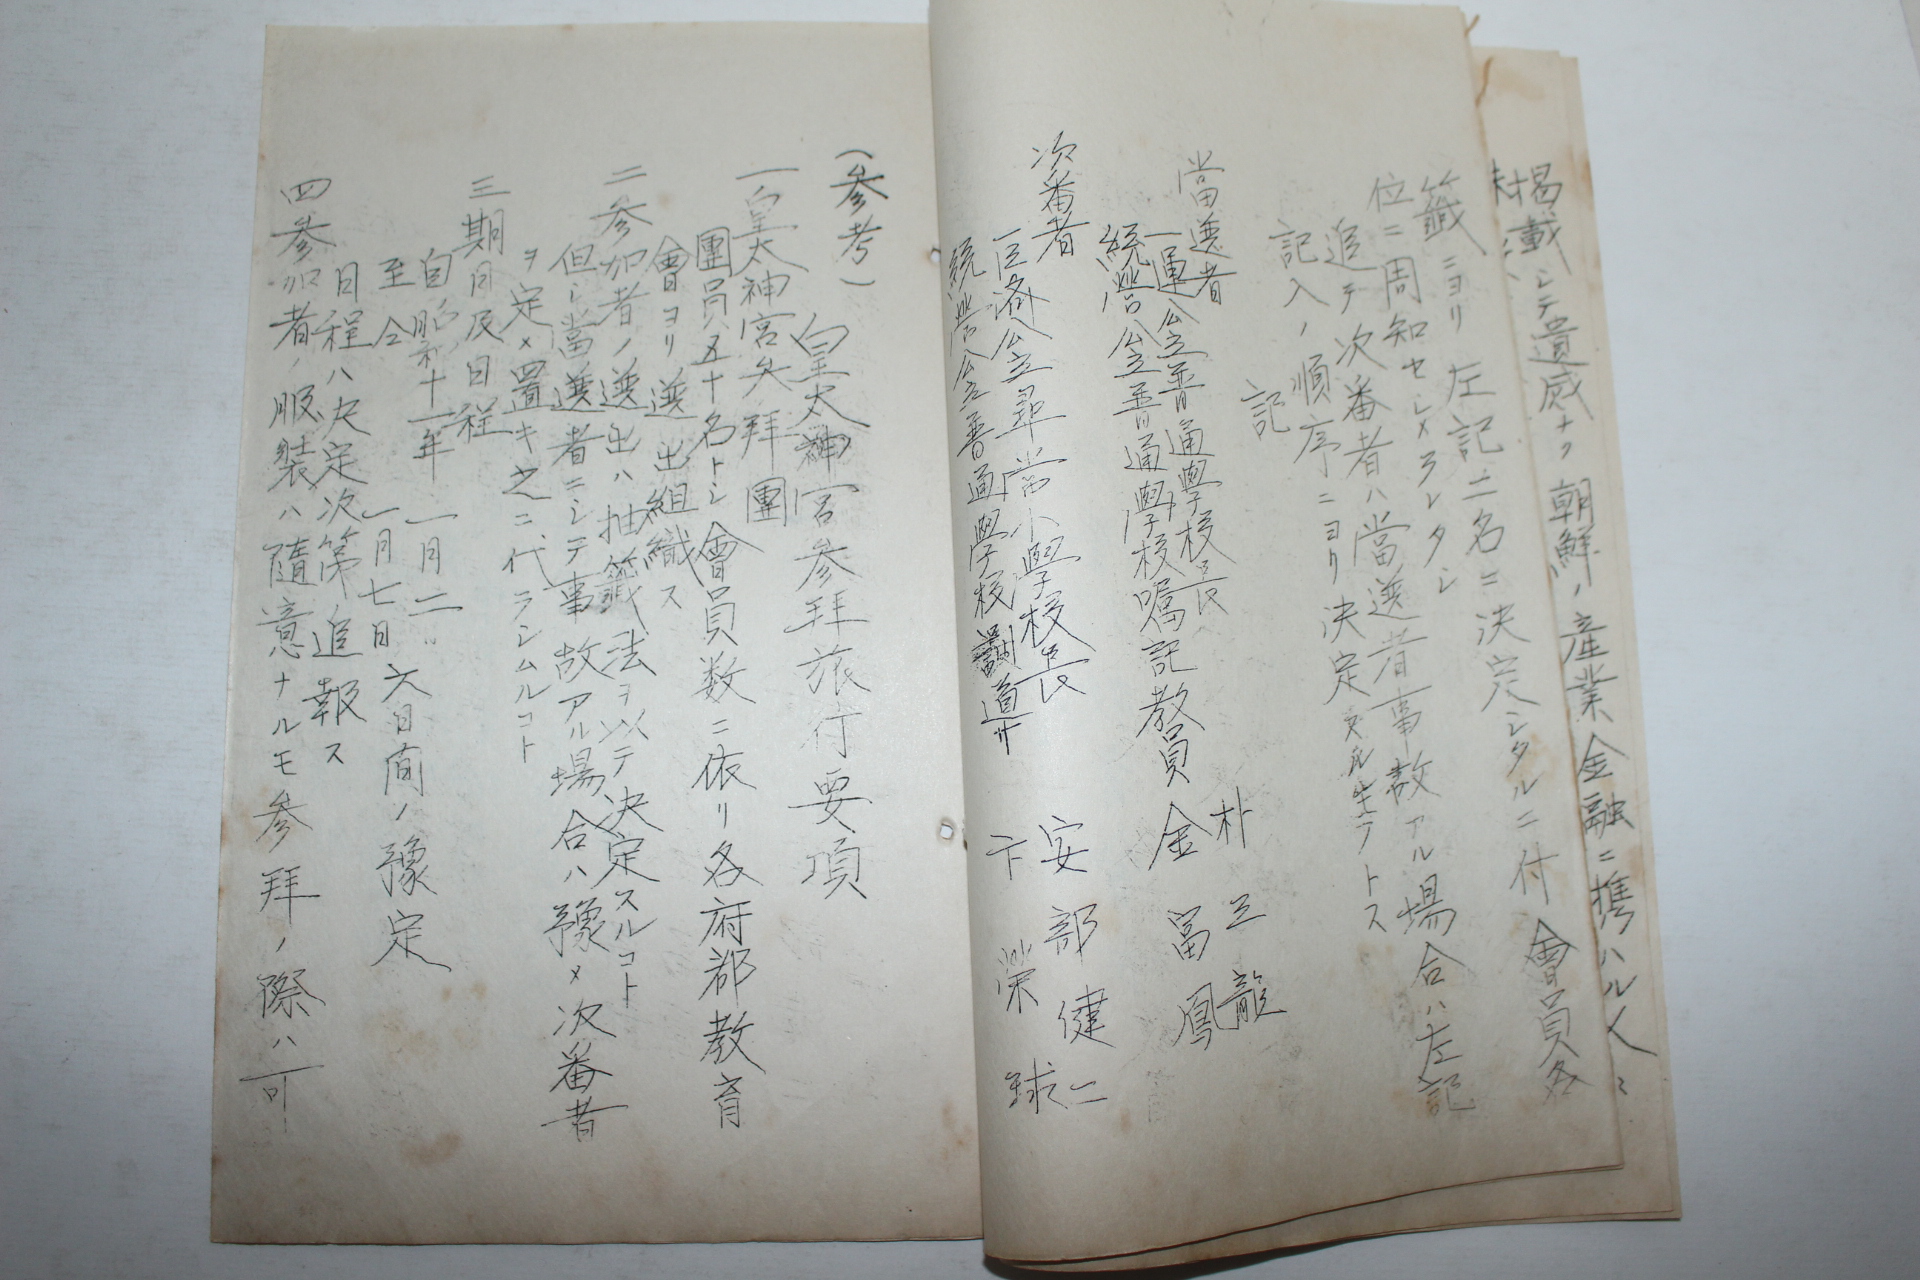 掲載シテ遺感ナク朝鮮ノ産業金融ニ携ハル人
籤ニヨリ左記二名ニ決定シタルニ付會員各
位ニ周知セシメラレタシ
追テ次番者ハ當選者事故アル場合ハ左記
記入ノ順序ニヨリ決定
記
當選者
一運公立普通學校長 朴 龍
統營公立普通學校囑記教員 金富鳳
次番者
巨濟公立尋常小學校長 安部健二
統營公立普通學校 卞榮球
(参考)
皇太神宮参拜旅行要項
一皇太神宮参拜團
團員ハ五十名トシ會員数ニ依リ各府郡教育
會ヨリ選出組織ス
二参加者ノ選出ハ抽籤法ヲ以テ決定スルコト
但シ當選者ニシテ事故アル場合ハ豫メ次番者
ヲ定メ置キ之ニ代ランムルコト
三期日及日程
自昭和十一年一月二日
至仝 一月七日 六日間ノ豫定
日程ハ決定次第追報ス
四参加者ノ服装ハ隨意ナルモ参拜ノ際ハ可